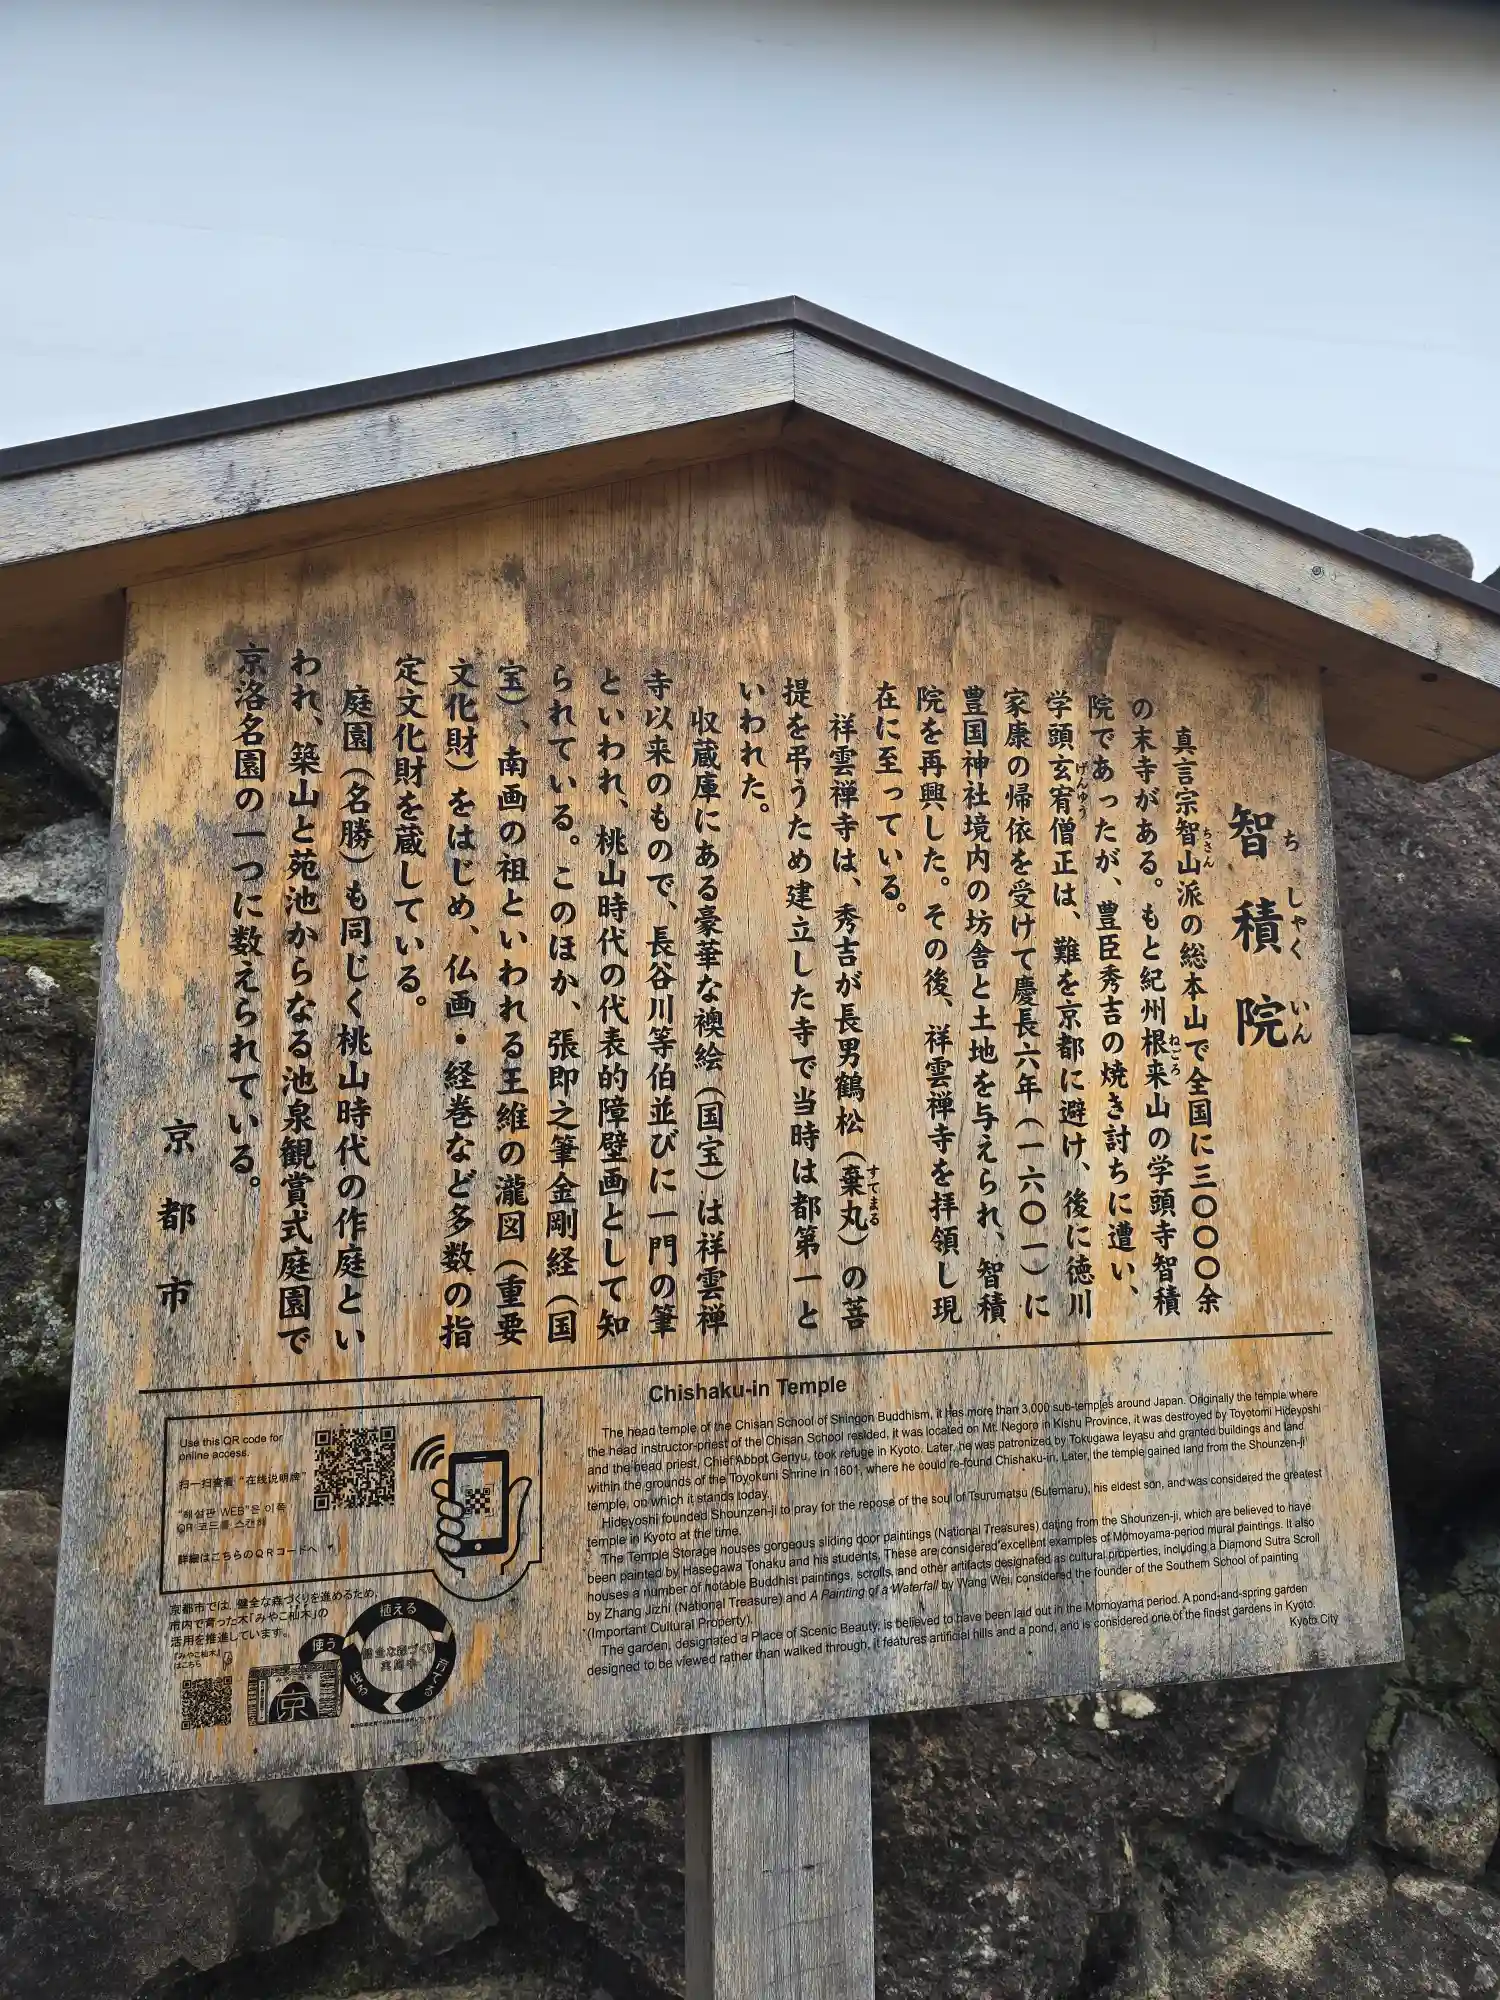 智積院
ちしゃくいん
真言宗智山派の総本山で全国に三〇〇〇余
ちさん
の末寺がある。もと紀州根来山の学頭寺智積
ねごろ
院であったが、豊臣秀吉の焼き討ちに遭い、
学頭玄宥僧正は、難を京都に避け、後に徳川
げんゆう
家康の帰依を受けて慶長六年（一六〇一）に
豊国神社境内の坊舎と土地を与えられ、智積
院を再興した。その後、祥雲禅寺を拝領し現
在に至っている。
祥雲禅寺は、秀吉が長男鶴松（棄丸）の菩
すてまる
提を弔うため建立した寺で当時は都第一と
いわれた。
収蔵庫にある豪華な襖絵（国宝）は祥雲禅
寺以来のもので、長谷川等伯並びに一門の筆
といわれ、桃山時代の代表的障壁画として知
られている。このほか、張即之筆金剛経（国
宝）、南画の祖といわれる王維の瀧図（重要
文化財）をはじめ、仏画・経巻など多数の指
定文化財を蔵している。
庭園（名勝）も同じく桃山時代の作庭とい
われ、築山と苑池からなる池泉観賞式庭園で
京洛名園の一つに数えられている。
京都市
Chishaku-in Temple
The head temple of the Chisan School of Shingon Buddhism, it has more than 3,000 sub-temples around Japan. Originally the temple where
the head instructor-priest of the Chisan School resided, it was located on Mt. Negoro in Kishu Province, it was destroyed by Toyotomi Hideyoshi
and the head priest, Chief Abbot Genyu, took refuge in Kyoto. Later, he was patronized by Tokugawa Ieyasu and granted buildings and land
within the grounds of the Toyokuni Shrine in 1601, where he could re-found Chishaku-in. Later, the temple gained land from the Shounzen-ji
temple, on which it stands today.
Hideyoshi founded Shounzen-ji to pray for the repose of the soul of Tsurumatsu (Sutemaru), his eldest son, and was considered the greatest
temple in Kyoto at the time.
The Temple Storage houses gorgeous sliding door paintings (National Treasures) dating from the Shounzen-ji, which are believed to have
been painted by Hasegawa Tohaku and his students. These are considered excellent examples of Momoyama-period mural paintings. It also
houses a number of notable Buddhist paintings, scrolls, and other artifacts designated as cultural properties, including a Diamond Sutra Scroll
by Zhang Jizhi (National Treasure) and A Painting of a Waterfall by Wang Wei, considered the founder of the Southern School of painting
(Important Cultural Property).
The garden, designated a Place of Scenic Beauty, is believed to have been laid out in the Momoyama period. A pond-and-spring garden
designed to be viewed rather than walked through, it features artificial hills and a pond, and is considered one of the finest gardens in Kyoto.
Kyoto City
Use this QR code for
online access.
扫一扫查看“在线说明牌”
"해설판 WEB"은 이쪽
QR 코드를 스캔해
詳細はこちらのQRコードへ
京都市では、健全な森づくりを進めるため、
市内で育った木「みやこ杣木」の
活用を推進しています。
『みやこ杣木』
はこちら
使う
植える
育てる
みやこ杣木
京